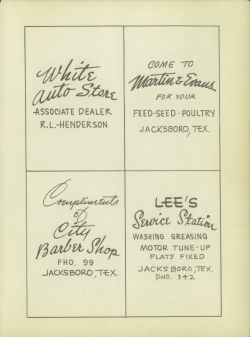 White
Auto Store
ASSOCIATE DEALER
R.L. HENDERSON
COME TO
Martin & Evans
FOR YOUR
FEED-SEED-POULTRY
JACKSBORO, TEX.
Compliments
of
City
Barber Shop
PHO. 99
JACKSBORO, TEX.
LEE'S
Service Station
WASHING GREASING
MOTOR TUNE-UP
FLATS FIXED
JACKSBORO, TEX.
PHO. 342